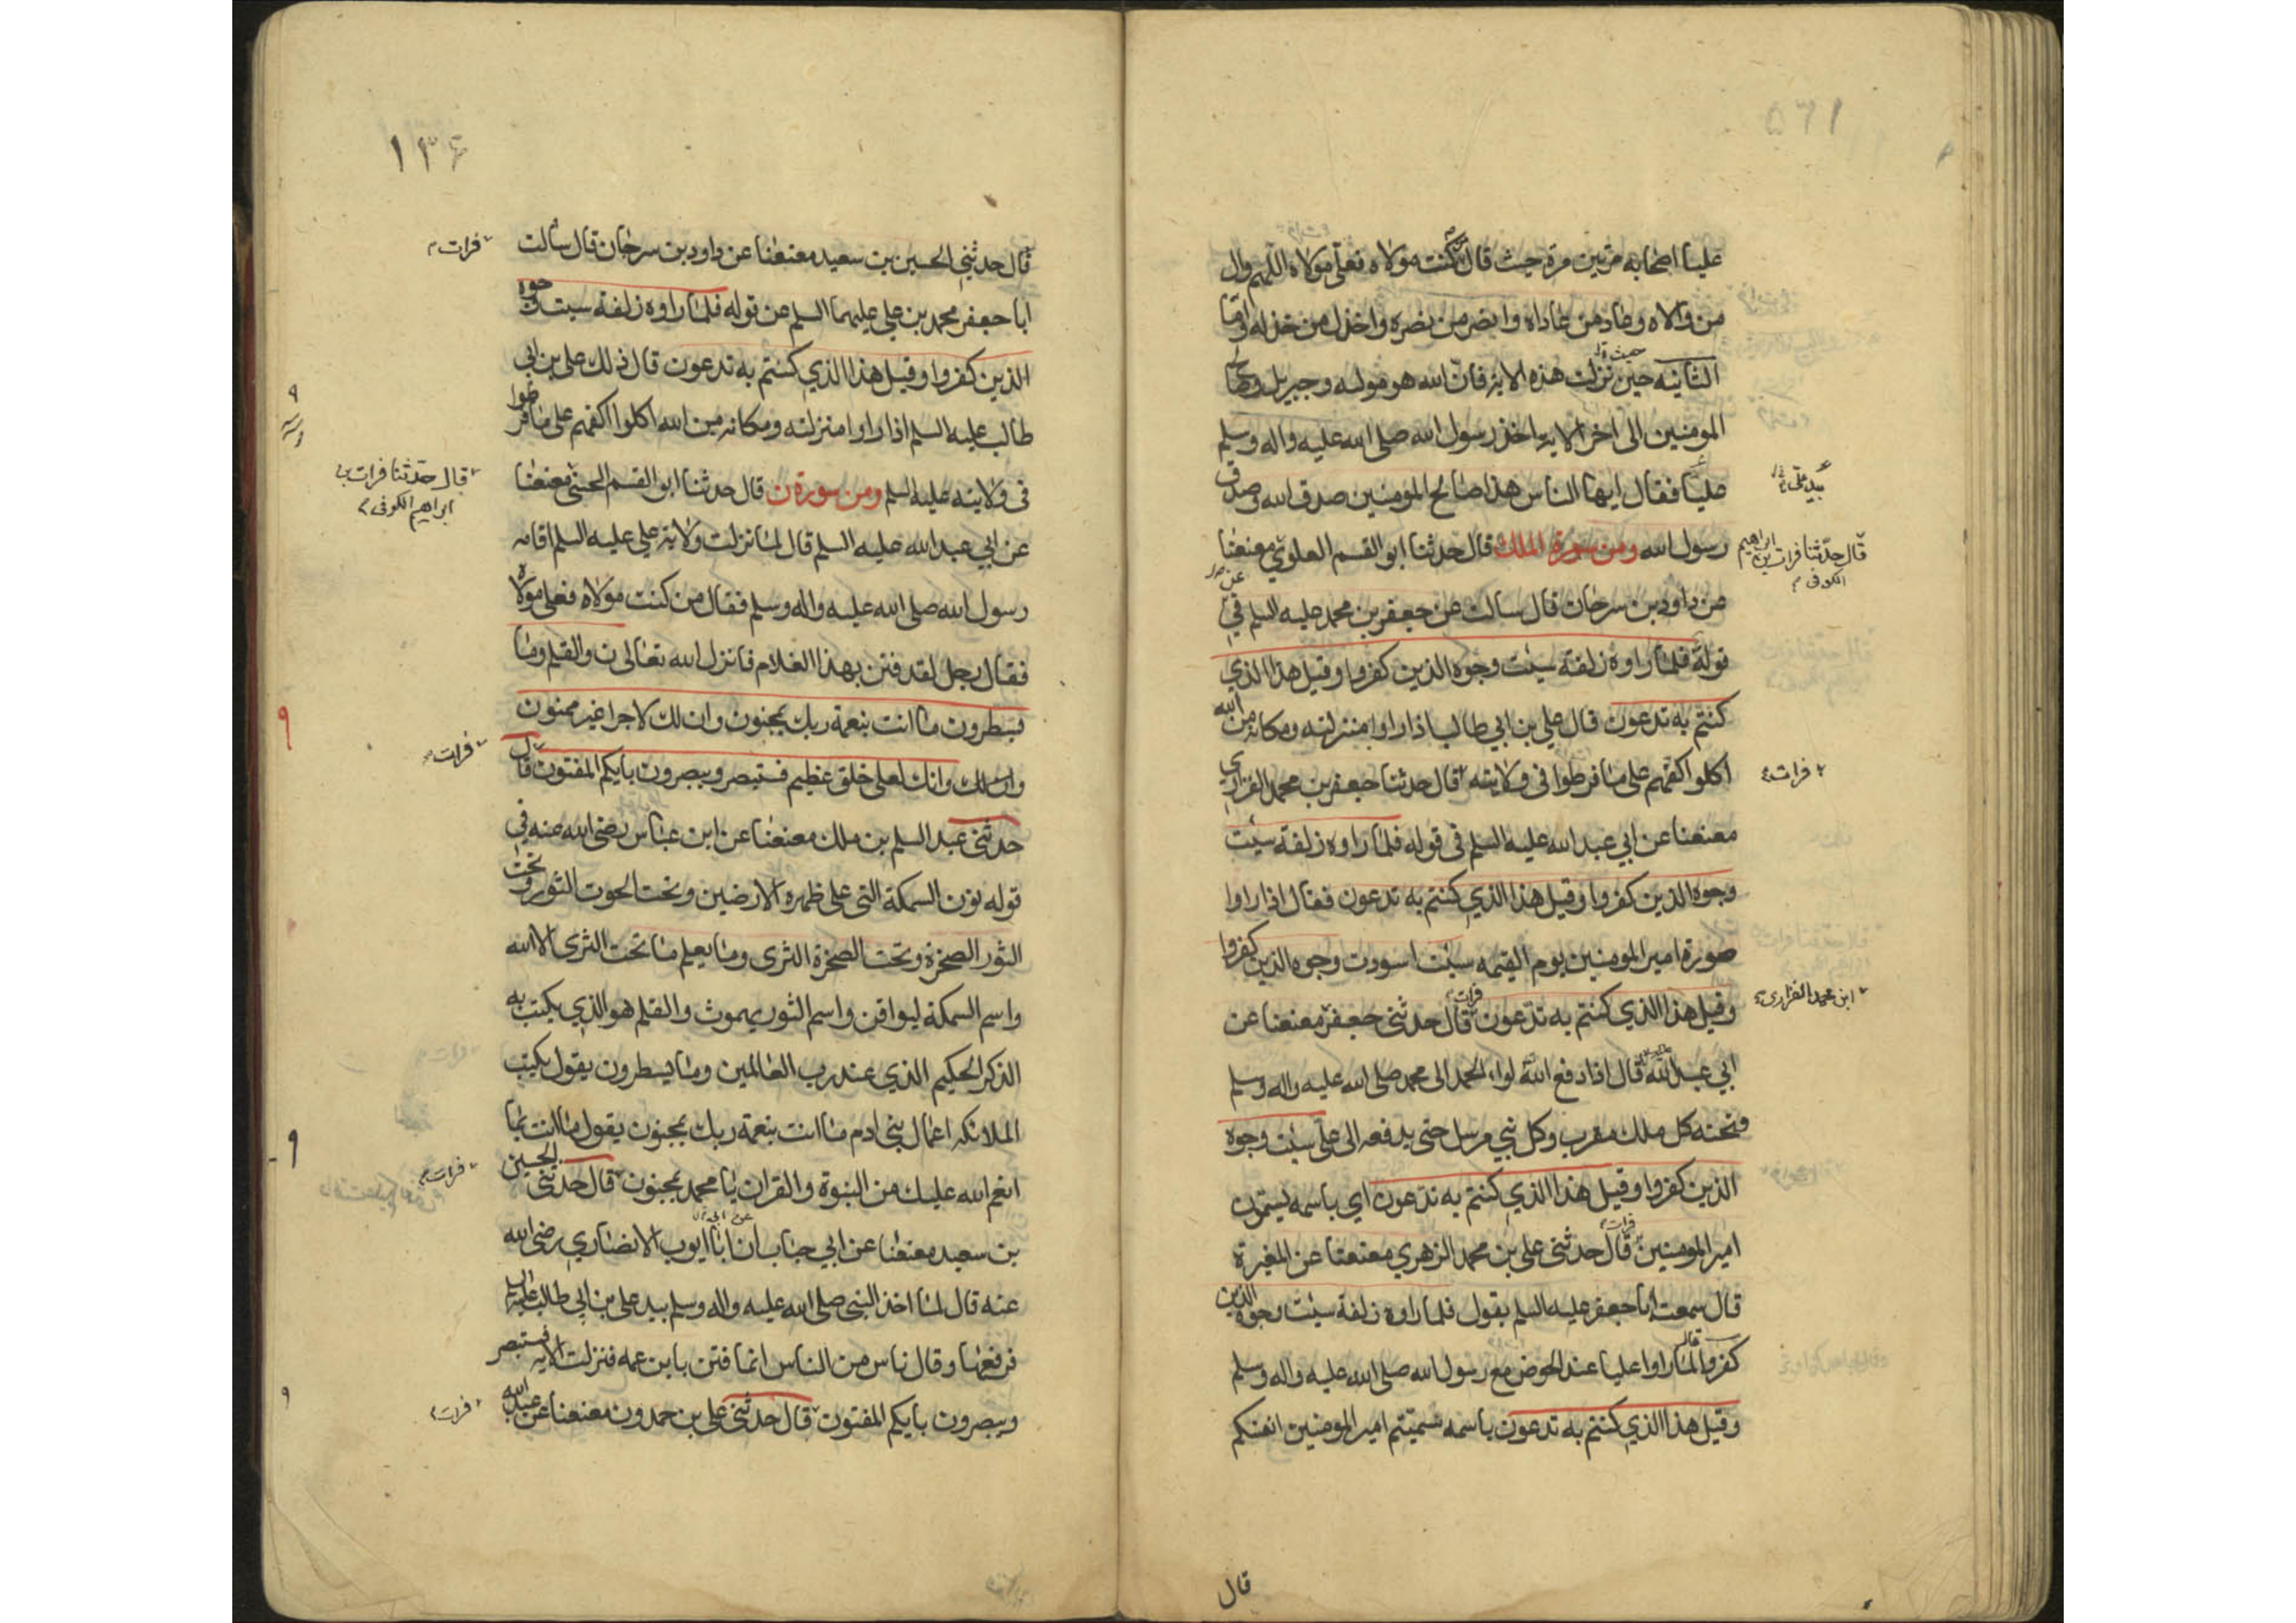 عليا اصحابه مرتين مرة حيث قال من كنت مولاه فعلي مولاه اللهم وال
من والاه وعاد من عاداه وانصر من نصره واخذل من خذله واما
الثانيه حين نزلت هذه الاية فان الله هو موليه وجبريل وصالح
المومنين الى اخر الاية اخذ رسول الله صلى الله عليه واله وسلم
عليا فقال ايها الناس هذا صالح المومنين صدق الله وصدق
رسول الله ومن سورة الملك قال حدثنا ابو القسم العلوي معنعنا
قال حدثنا فرات بن ابراهيم
الكوفى
عن داود بن سرحان قال سالت عن جعفر بن محمد عليه السلم في
قوله فلما راوه زلفة سيئت وجوه الذين كفروا وقيل هذا الذي
كنتم به تدعون قال علي بن ابي طالب اذا راوا منزلته ومكانه من الله
اكلوا اكفهم على ما فرطوا فى ولايته قال حدثنا جعفر بن محمد الفزاري
فرات
معنعنا عن ابي عبد الله عليه السلم فى قوله فلما راوه زلفة سيئت
وجوه الذين كفروا وقيل هذا الذي كنتم به تدعون فقال اذا راوا
صورة امير المومنين يوم القيمه سيئت اسودت وجوه الذين كفروا
وقيل هذا الذي كنتم به تدعون قال حدثنى فرات جعفر معنعنا عن
ابن محمد الفزارى
ابي عبد الله قال اذا دفع الله لواء الحمد الى محمد صلى الله عليه واله وسلم
تحته كل ملك مقرب وكل نبي مرسل حتى يدفعه الى علي سيئت وجوه
الذين كفروا وقيل هذا الذي كنتم به تدعون اي باسمه تسمون
امير المومنين قال حدثنى فرات علي بن محمد الزهري معنعنا عن المغيرة
قال سمعت ابا جعفر عليه السلم يقول فلما راوه زلفة سيئت وجوه الذين
كفروا قال لما راوا عليا عند الحوض مع رسول الله صلى الله عليه واله وسلم
وقيل هذا الذي كنتم به تدعون باسمه تسميتم امير المومنين انفسكم
قال
١٣۶
قال حدثني الحسين بن سعيد معنعنا عن داود بن سرحان قال سالت
فرات
ابا جعفر محمد بن علي عليهما السلم عن قوله فلما راوه زلفة سيئت وجوه
الذين كفروا وقيل هذا الذي كنتم به تدعون قال ذلك علي بن ابي
طالب عليه السلم اذا راوا منزلته ومكانه من الله اكلوا اكفهم على ما فرطوا
فى ولايته عليه السلم ومن سورة ن قال حدثنا ابو القسم الحسنى معنعنا
قال حدثنا فرات بن
ابراهيم الكوفى
عن ابي عبد الله عليه السلم قال لما نزلت ولاية علي عليه السلم اقامه
رسول الله صلى الله عليه واله وسلم فقال من كنت مولاه فعلي مولاه
فقال رجل لقد فتن بهذا الغلام فانزل الله تعالى ن والقلم وما
يسطرون ما انت بنعمة ربك بمجنون وان لك لاجرا غير ممنون
وان لك وانك لعلى خلق عظيم فستبصر ويبصرون بايكم المفتون قال
فرات
حدثنى عبد السلم بن ملك معنعنا عن ابن عباس رضى الله عنه في
قوله نون السمكة التى على ظهره الارضين وتحت الحوت الثور وتحت
الثور الصخرة وتحت الصخرة الثرى وما يعلم ما تحت الثرى الا الله
واسم السمكة ليواقن واسم الثور يهموث والقلم هو الذي يكتب به
الذكر الحكيم الذي عند رب العالمين وما يسطرون يقول يكتب
الملائكة اعمال بنى ادم ما انت بنعمة ربك بمجنون يقول ما انت بما
انعم الله عليك من النبوة والقران يا محمد بمجنون قال حدثنى الحسين
فرات
بن سعيد معنعنا عن ابي جناب ان ابا ايوب الانصاري رضى الله
عنه قال لما اخذ النبى صلى الله عليه واله وسلم بيد علي بن ابي طالب عليه السلم
فرفعها وقال ناس من الناس انما فتن بابن عمه فنزلت الاية فستبصر
ويبصرون بايكم المفتون قال حدثنى علي بن حمدون معنعنا عن عبد الله
فرات